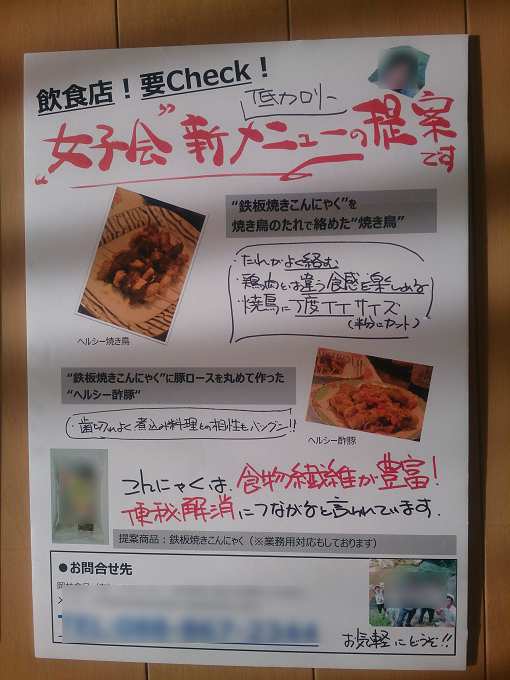 飲食店！要Check！
低カロリー
“女子会”新メニューの提案です
“鉄板焼きこんにゃく”を
焼き鳥のたれで絡めた“焼き鳥”
・たれがよく絡む
・鶏肉とは違う食感を楽しめる
・焼鳥に丁度イイサイズ
(半分にカット)
ヘルシー焼き鳥
“鉄板焼きこんにゃく”に豚ロースを丸めて作った
“ヘルシー酢豚“
・歯切れよく煮込み料理との相性もバツグン!!
ヘルシー酢豚
こんにゃくは、食物繊維が豊富！
便秘解消につながると言われています.
提案商品：鉄板焼きこんにゃく（※業務用対応もしております）
●お問合せ先
お気軽にどうぞ!!